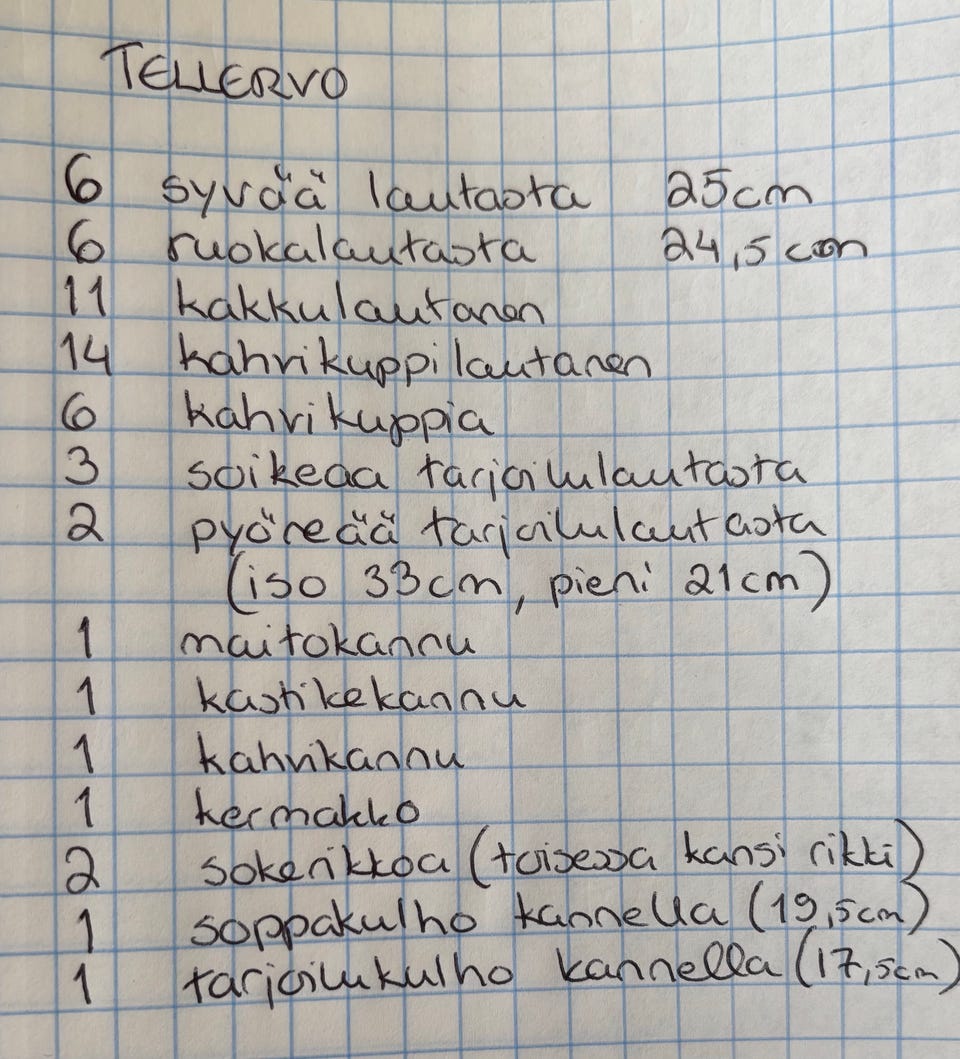 TELLERVO
6 syvää lautasta 25cm
6 ruokalautasta 24,5 cm
11 kakkulautanen
14 kahvikuppilautanen
6 kahvikuppia
3 soikeaa tarjoilulautasta
2 pyöreää tarjoilulautasta
(iso 33cm, pieni 21cm)
1 maitokannu
1 kastikekannu
1 kahvikannu
1 kermakko
2 sokerikkoa (toisessa kansi rikki)
1 soppakulho kannella (19,5cm)
1 tarjoilukulho kannella (17,5cm)